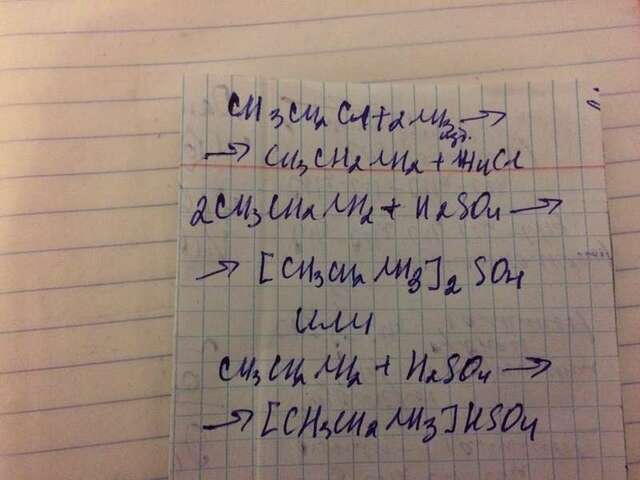 CH3CH2Cl+2NH3 изб. →
→ CH3CH2NH2 + NH4Cl
2CH3CH2NH2 + H2SO4 →
→ [CH3CH2NH3]2SO4
или
CH3CH2NH2 + H2SO4 →
→ [CH3CH2NH3]HSO4